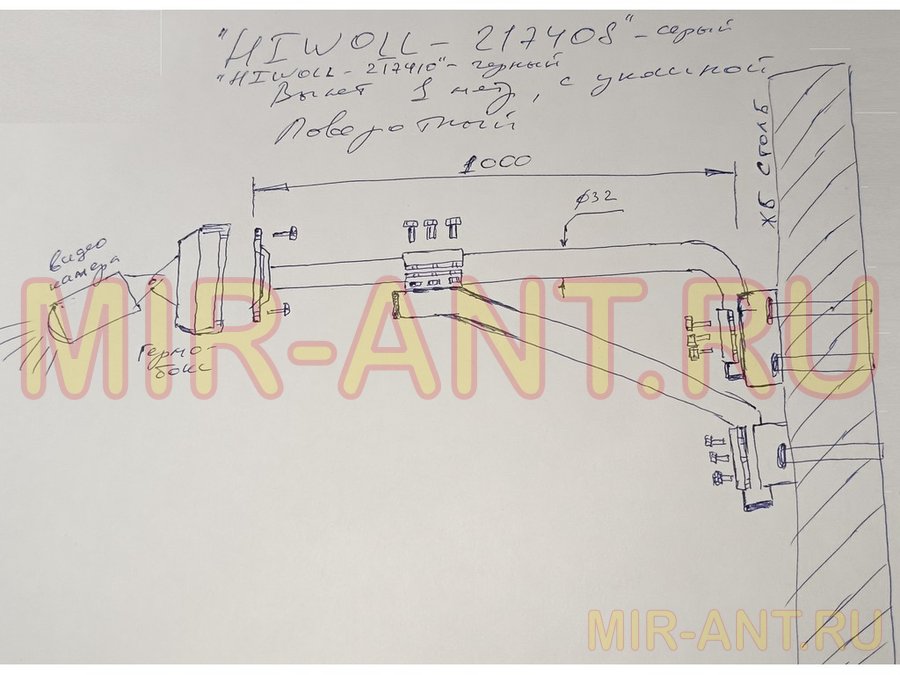 "HIWOLL - 217408" - серый
"HIWOLL - 217410" - черный
Вылет 1 метр, с укосиной
Поворотный
1000
ф32
ЖБ СТОЛБ
видео
камера
Термо-
бокс
MIR-ANT.RU
MIR-ANT.RU